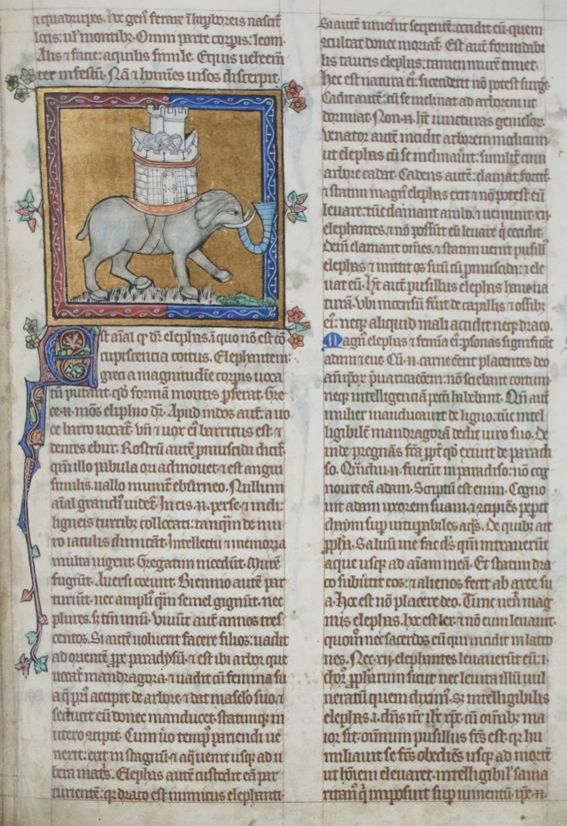 quadrupes. hoc gen᷒ ferarū i hiꝑboreis nascit᷑
locis. ul' montibꝫ. Omni parte corꝑis. leoni.
Alis ⁊ facie. aquilis simile. Equis uehem̄
ter infestū. Nā ⁊ homines uisos discerpit.
Est aīal qd̕ dr̄ elephas. ī quo nō est cō
cupiscencia coitus. Elephantem
greci a magnitudīe corꝑis uoca
tū putant. qd̕ formā montis p̄ferat. Gre
ce .n. mōs eliphio dr̄. Apud indos aut̄. a uo
ce barro uocat᷑. vn̄ ⁊ uox ei᷒ barritus est. ⁊
dentes ebur. Rostrū autē pmuscida dicit᷑.
qm̄ illo pabula ori admouet. ⁊ est angui
similis. uallo munit᷑ eburneo. Nullum
aīal grandi᷒ uidet᷑. In eis .n. perse ⁊ indi.
ligneis turribꝫ collocati. tanq̄m de mu
ro iaculis dimicāt. Intellectu ⁊ memoria
multa uigent. Gregatim incedūt. Murē
fugiūt. Auersi coeunt. Biennio autē par
turiūt. nec ampli᷒ q̄m semel gignūt. nec
plures. s; tm̄ unū. Viuūt autē annos tres
centos. Si autē uoluerit facere filios. uadit
ad orientē. ꝓpe paradysū. ⁊ est ibi arbor que
uocat᷑ mandragora. ⁊ uadit cū femina su
a. q̄ pri᷒ accipit de arbore. ⁊ dat masclo suo. ⁊
seducit eū donec manducet. statimqꝫ in
utero ↄcipit. Cum uo temp᷒ pariendi ue
nerit. exit in stagnū. ⁊ aq̄ uenit usqꝫ ad u
bera matis. Elephas autē custodit eā par
turientē. qꝛ draco est inimicus elephanti.
Si autē inuenit serpentē. occidit eū. ⁊ tam
ↄculcat donec moriat᷑. Est autē formidabi
lis tauris elephas. tamen murē timet.
hec est natura ei᷒. si ceciderit nō potest surge.
Cadit autē. cū se inclinat ad arborem ut
dormiat. Non .n. ht̄ iuncturas geniclor᷒.
Venator autē incidit arborem modicum.
ut elephas cū se inclinauit. similit̄ cum
arbore cadat. Cadens autē clamat fortit̄.
⁊ statim magn᷒ elephas exit. ⁊ nō potest eū
leuare. tūc clamant ambo. ⁊ ueniunt .xij.
elephantes. ⁊ nō possūt eū leuare q̄ cecidit.
Dein̄ clamant om̄es. ⁊ statim uenit pusill᷒
elephas. ⁊ mittit os suū cū pmuscida. ⁊ ele
uat eū. Ht̄ autē pusillus elephas hanc na
turā. vbi incensū fuit de capillis ⁊ ossibꝫ
ei᷒. neqꝫ aliquid mali accidit neqꝫ draco.
Magn᷒ elephas ⁊ femīa ei᷒. ꝑsonas significāt
adam ⁊ eue. Cū .n. carne eēnt placentes deo
an̄ ꝓpr̄ p̄uaricacōem. nō sciebant coitum.
neqꝫ intelligenciā pecc̄i habebant. Qn̄ autē
mulier manducauit de ligno. tūc intel
ligibilē mandragorā dedit uiro suo. de
inde pregnās fcā. ꝓpt̄ qd̕ exiuit de paradi
so. Qm̄diu .n. fuerūt in paradiso. nō cog
nouit eā adam. Scriptū est enim. Cogno
uit adam uxorem suam. ⁊ ↄcipiēs peperit
chaym sup uitupabiles aq̄s. De quibꝫ ait
ꝓph̄a. Saluū me fac ds̄. qm̄ intrauerūt
aque usqꝫ ad aīam meā. Et statim dra
co subuertit eos. ⁊ alienos fecit ab arce su
a. hoc est nō placere deo. Tunc uenit mag
nus elephas. hoc est lex. ⁊ nō eum leuauit.
quom̄ nec sacerdos eū qui incidit in latro
nes. Nec .xij. elephantes leuauerūt eū. i.
chor᷒ ꝓphar᷒. sicut nec leuita illū uul
neratū quem dixim᷒. Sꝫ intelligibilis
elephas .i. dn̄s nr̄ ihs̄ xp̄c. cū om̄ibꝫ ma
ior sit. om̄ium pusillus fcs̄ est. qꝛ hu
miliauit se fcs̄ obediēs usqꝫ ad mortē
ut hōiem eleuaret. intelligibil' sama
ritan᷒ q̄ imposuit sup iumentū. ip̄e .n.